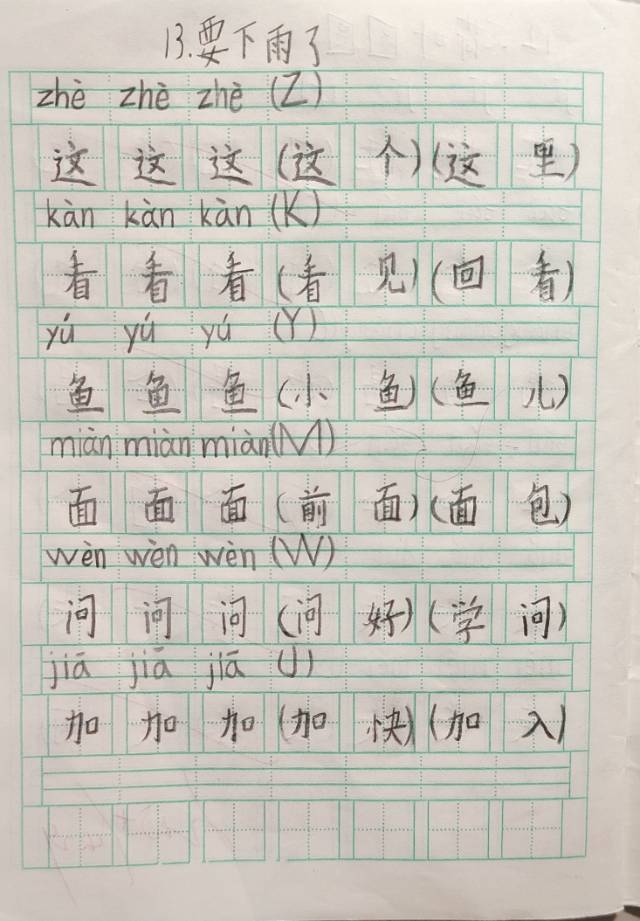 13.要下雨了
zhè zhè zhè (Z)
这 这 这 (这 个) (这 里)
kàn kàn kàn (K)
看 看 看 (看 见) (回 看)
yú yú yú (Y)
鱼 鱼 鱼 (小 鱼) (鱼 儿)
miàn miàn miàn (M)
面 面 面 (前 面) (面 包)
wèn wèn wèn (W)
问 问 问 (问 好) (学 问)
jiā jiā jiā (J)
加 加 加 (加 快) (加 入)